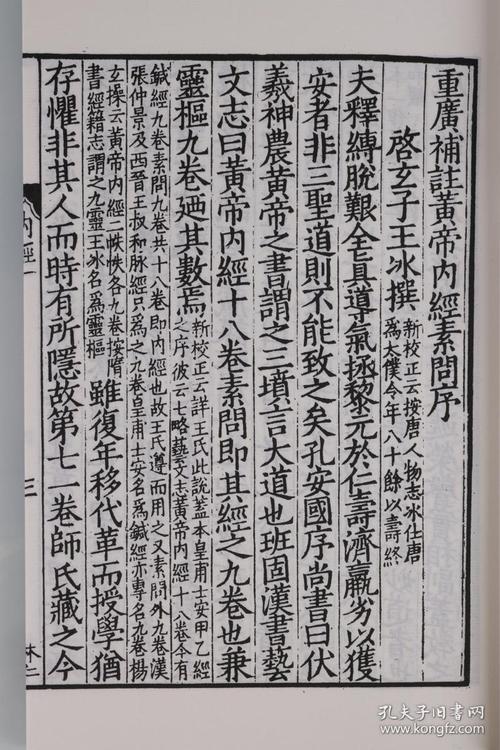 重廣補註黃帝內經素問序
啓玄子王冰撰 新校正云按唐人物志冰仕唐
爲太僕令年八十餘以壽終
夫釋縛脫艱全真導氣拯黎元於仁壽濟羸劣以獲
安者非三聖道則不能致之矣孔安國序尚書曰伏
羲神農黃帝之書謂之三墳言大道也班固漢書藝
文志曰黃帝內經十八卷素問即其經之九卷也兼
靈樞九卷廼其數焉 新校正云詳王氏此說蓋本皇甫士安甲乙經
之序彼云七略藝文志黃帝內經十八卷今有
鍼經九卷素問九卷共十八卷即內經也故王氏遵而用之又素問外九卷漢
張仲景及西晉王叔和脉經只爲之九卷皇甫士安名爲鍼經亦專名九卷楊
玄操云黃帝內經二帙帙各九卷按隋
書經籍志謂之九靈王冰名爲靈樞 雖復年移代革而授學猶
存懼非其人而時有所隱故第七一卷師氏藏之今
三
孔夫子旧书网
www.kongfz.com